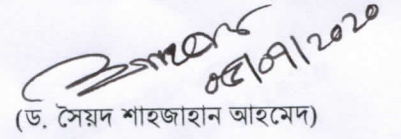 ০৫/০৭/২০২০
(ড. সৈয়দ শাহজাহান আহমেদ)